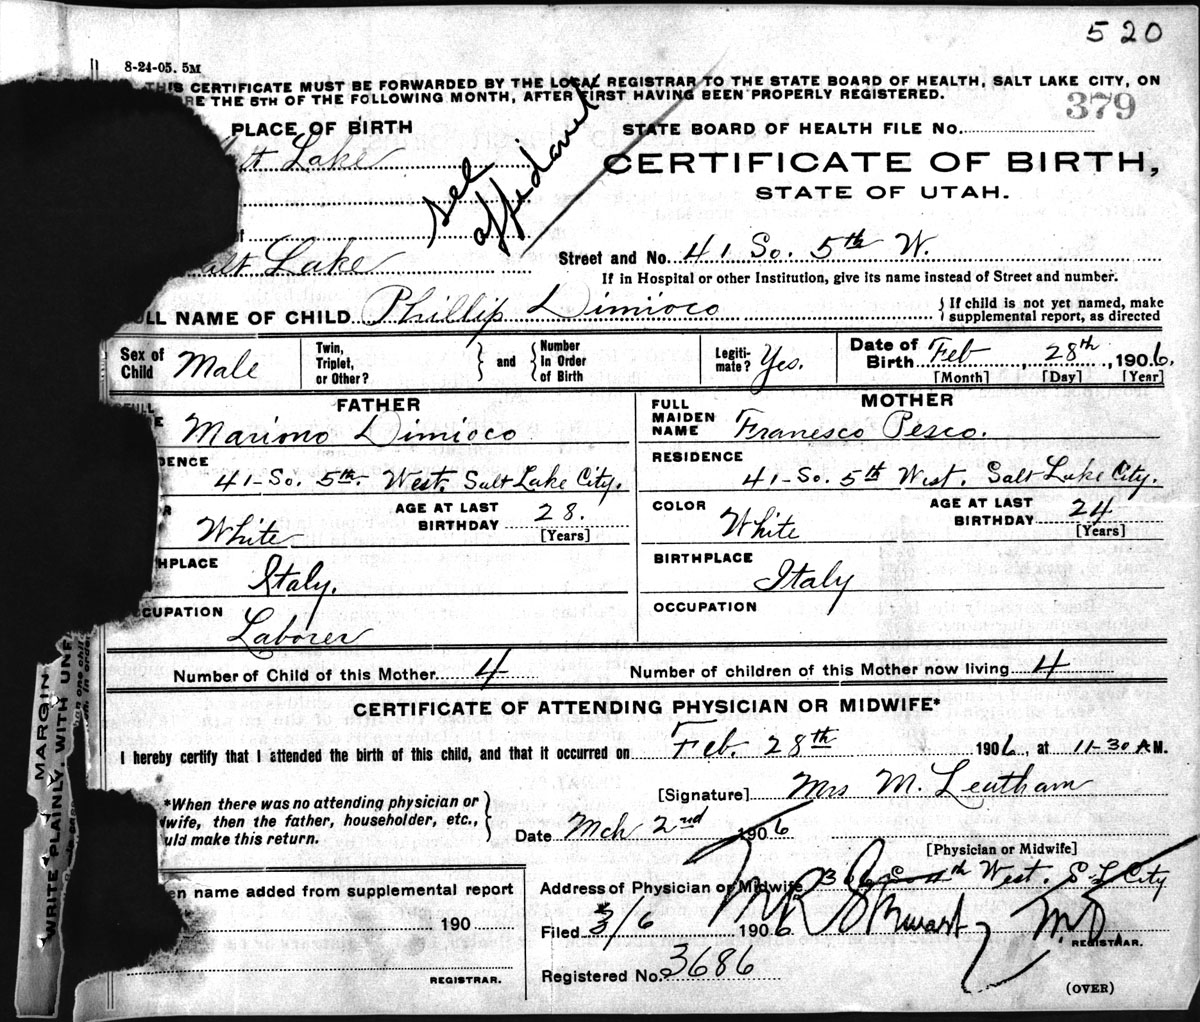 520
8-24-05. 5M
THIS CERTIFICATE MUST BE FORWARDED BY THE LOCAL REGISTRAR TO THE STATE BOARD OF HEALTH, SALT LAKE CITY, ON
RE THE 5TH OF THE FOLLOWING MONTH, AFTER FIRST HAVING BEEN PROPERLY REGISTERED.
379
PLACE OF BIRTH
STATE BOARD OF HEALTH FILE No.
alt Lake
See affidavit
CERTIFICATE OF BIRTH,
STATE OF UTAH.
alt Lake
Street and No. 41 So. 5th W.
If in Hospital or other Institution, give its name instead of Street and number.
ULL NAME OF CHILD Phillip Dimioco
If child is not yet named, make
supplemental report, as directed
Sex of Child Male
Twin, Triplet, or Other?
and
Number In Order of Birth
Legiti-mate? Yes.
Date of Birth Feb 28th, 1906.
[Month] [Day] [Year]
FATHER
ULL
Marimo Dimioco
DENCE
41-So. 5th. West. Salt Lake City.
White
AGE AT LAST BIRTHDAY 28.
[Years]
HPLACE
Italy.
CUPATION
Laborer
MOTHER
FULL MAIDEN NAME Francesco Pesco.
RESIDENCE
41-So. 5th West. Salt Lake City.
COLOR White
AGE AT LAST BIRTHDAY 24
[Years]
BIRTHPLACE
Italy
OCCUPATION
Number of Child of this Mother 4
Number of children of this Mother now living 4
CERTIFICATE OF ATTENDING PHYSICIAN OR MIDWIFE*
I hereby certify that I attended the birth of this child, and that it occurred on Feb. 28th 1906, at 11-30 A M.
[Signature] Mrs M. Leatham
*When there was no attending physician or
dwife, then the father, householder, etc.,
uld make this return.
Date Mch 2nd 1906
[Physician or Midwife]
en name added from supplemental report
190
REGISTRAR.
Address of Physician or Midwife West. S L City
Filed 3/6 1906
M.D.
REGISTRAR.
Registered No. 3686
(OVER)
MARGIN
WRITE PLAINLY, WITH UNF